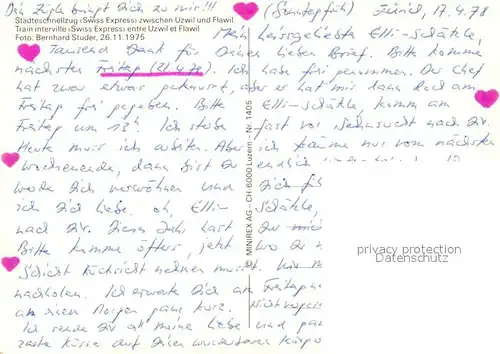 Der Zügle bringt Dich zu mir!!!
Städteschnellzug ‹Swiss Express› zwischen Uzwil und Flawil
Train interville ‹Swiss Express› entre Uzwil et Flawil
Foto: Bernhard Studer, 26.11.1975
Tausend Dank für
Deinen lieben Brief. Bitte komme
nächsten Freitag (21.4.78). Ich habe frei genommen. Der Chef
hat zwar etwas gemurrt, aber er hat mir dann doch am
Freitag frei gegeben. Bitte
Freitag um 13 Ich sterbe
Heute muss ich arbeiten. Aber
wochenende, dann bist Du
werde Dich verwöhnen und
ich Dich liebe. oh, Elli-
nach Dir. Dieses Jahr hast
Bitte komme öfters, jetzt
Schicht Rücksicht nehmen musst.
nachholen. Ich erwarte Dich am Freitag
am einen Morgen ganz kurz.
Ich sende Dir all meine Liebe
zarte Küsse auf Deinen wunderbaren Körper
MINIREX AG – CH-6000 Luzern – Nr. 1405
(Sonntag früh) Zürich, 17.4.78
Mein heissgeliebtes Elli-Schätzle,
Elli-Schätzle, komm am
fast vor Sehnsucht nach Dir.
ich träume nur vom nächsten
endlich
Dich
Schätzle,
Du
wo Du
Nicht
und
privacy protection
Datenschutz